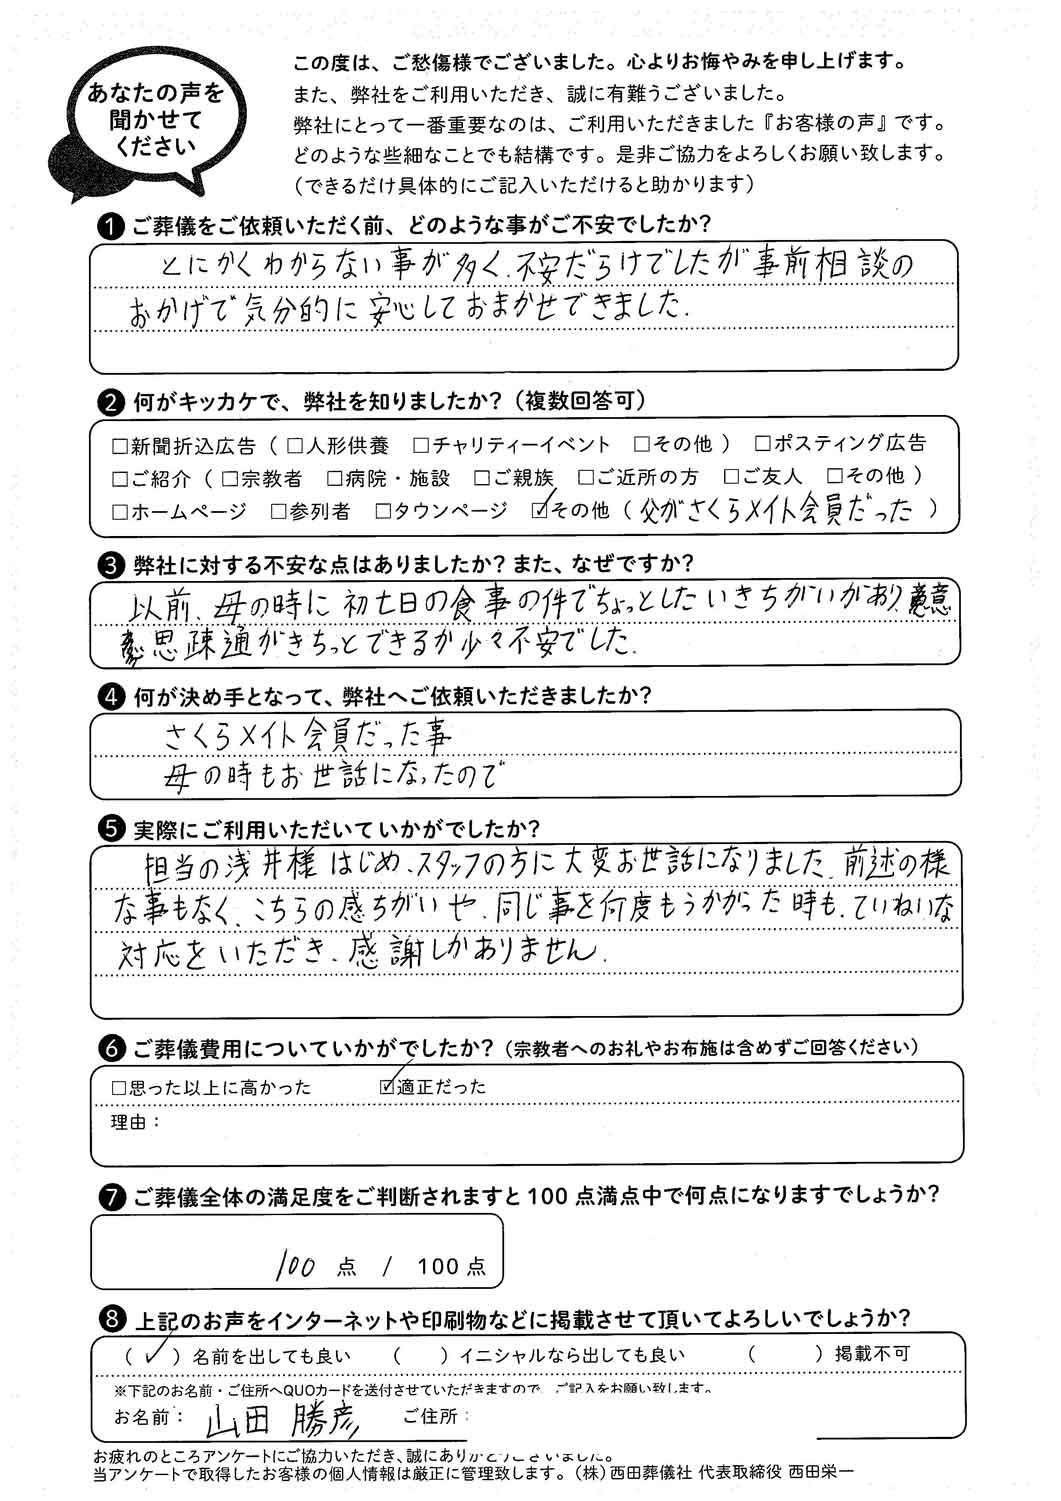 あなたの声を
聞かせて
ください
この度は、ご愁傷様でございました。心よりお悔やみを申し上げます。
また、弊社をご利用いただき、誠に有難うございました。
弊社にとって一番重要なのは、ご利用いただきました『お客様の声』です。
どのような些細なことでも結構です。是非ご協力をよろしくお願い致します。
（できるだけ具体的にご記入いただけると助かります）
❶ ご葬儀をご依頼いただく前、どのような事がご不安でしたか？
とにかくわからない事が多く、不安だらけでしたが事前相談の
おかげで気分的に安心しておまかせできました.
❷ 何がキッカケで、弊社を知りましたか？（複数回答可）
□新聞折込広告（ □人形供養 □チャリティーイベント □その他 ） □ポスティング広告
□ご紹介（ □宗教者 □病院・施設 □ご親族 □ご近所の方 □ご友人 □その他 ）
□ホームページ □参列者 □タウンページ ☑その他（ 父がさくらメイト会員だった ）
❸ 弊社に対する不安な点はありましたか？また、なぜですか？
以前、母の時に初七日の食事の件でちょっとしたいきちがいがあり、意
思疎通がきちっとできるか少々不安でした.
❹ 何が決め手となって、弊社へご依頼いただきましたか？
さくらメイト会員だった事
母の時もお世話になったので
❺ 実際にご利用いただいていかがでしたか？
担当の浅井様はじめ、スタッフの方に大変お世話になりました.前述の様
な事もなく、こちらの感ちがいや、同じ事を何度もうかがった時も、ていねいな
対応をいただき、感謝しかありません.
❻ ご葬儀費用についていかがでしたか？（宗教者へのお礼やお布施は含めずご回答ください）
□思った以上に高かった ☑適正だった
理由：
❼ ご葬儀全体の満足度をご判断されますと100点満点中で何点になりますでしょうか？
100 点 / 100点
❽ 上記のお声をインターネットや印刷物などに掲載させて頂いてよろしいでしょうか？
（ ✓ ）名前を出しても良い （ ）イニシャルなら出しても良い （ ）掲載不可
※下記のお名前・ご住所へQUOカードを送付させていただきますので、ご記入をお願い致します。
お名前： 山田 勝彦 ご住所：
お疲れのところアンケートにご協力いただき、誠にありがとうございました。
当アンケートで取得したお客様の個人情報は厳正に管理致します。（株）西田葬儀社 代表取締役 西田栄一